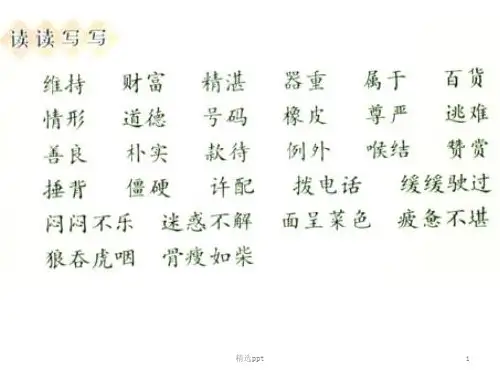 读读写写
维持 财富 精湛 器重 属于 百货
情形 道德 号码 橡皮 尊严 逃难
善良 朴实 款待 例外 喉结 赞赏
捶背 僵硬 许配 拨电话 缓缓驶过
闷闷不乐 迷惑不解 面呈菜色 疲惫不堪
狼吞虎咽 骨瘦如柴
精选ppt 1